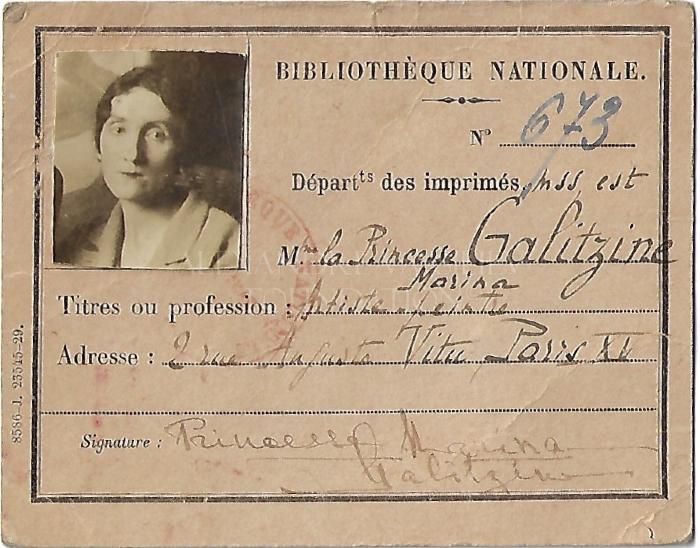 BIBLIOTHÈQUE NATIONALE.
N° 673
Départts des imprimés, mss, est
Mme la Princesse Galitzine
Marina
Titres ou profession : Artiste peintre
Adresse : 2 rue Auguste Vitu, Paris XV
Signature : Princesse Marina
Galitzine
8586-J. 23545-29.